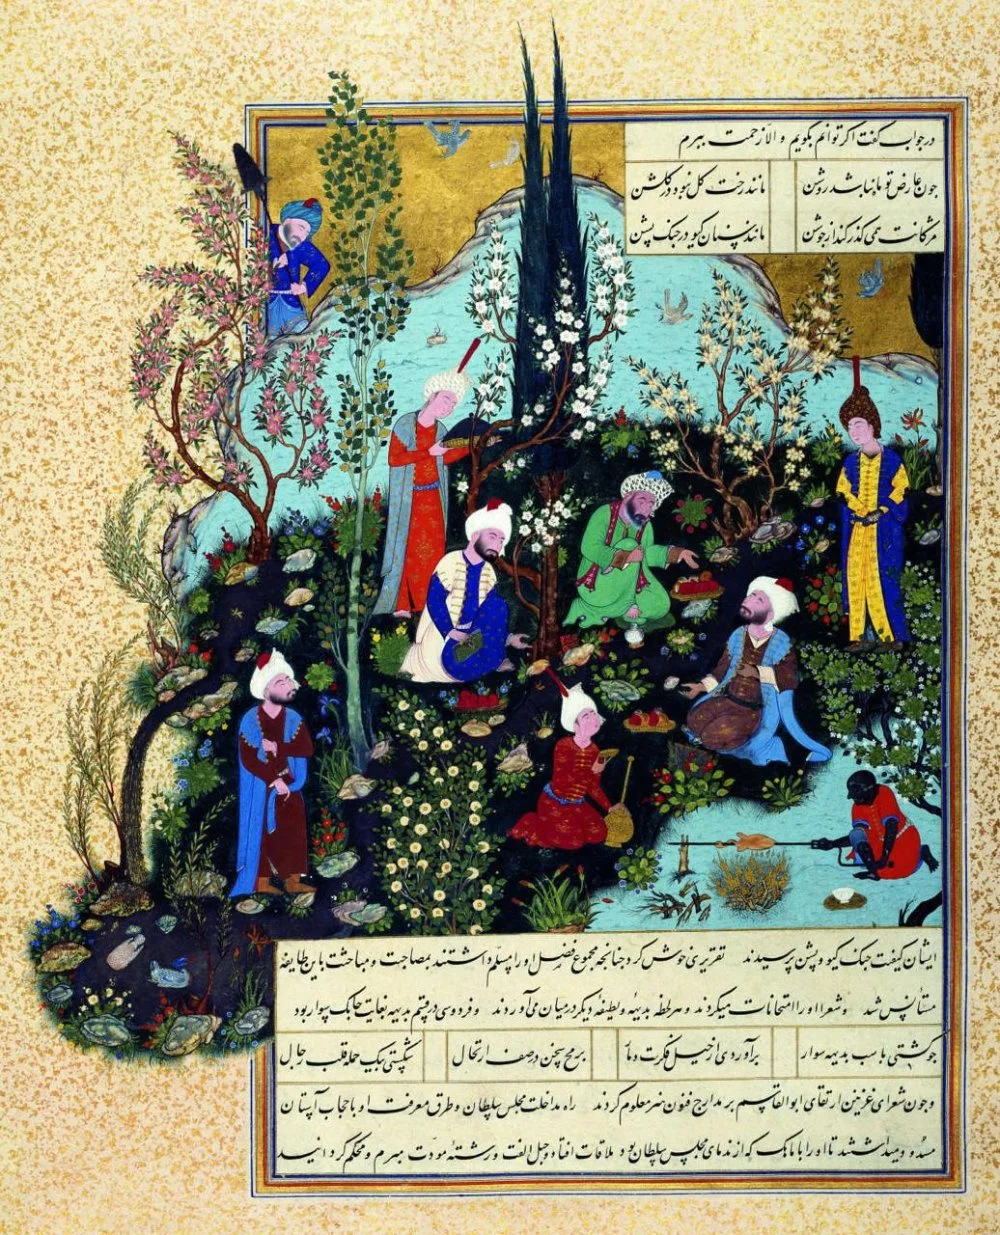 در جواب گفت اکر توانم بکویم و الا زحمت ببرم
جون عارض تو ماه نباشد روشن مانند رخت کل نبود در کلشن
مژکانت همی کذر کند از جوشن مانند سنان کیو در جنک پشن
ایشان کیفت جنک کیو و پشن پرسیدند تقریری خوش کرد جنانجه مجموع فضل او را مسلم داشتند بمصاحبت و مباحثت با این طایفه
مستانس شد و شعرا او را امتحانات میکردند و هر لحظه بدیهه و لطیفه دیکر در میان می آوردند و فردوسی در فن بدیهه بغایت چابک سوار بود
جو کشتی باسب بدیهه سوار برآوردی از خیل فکرت دمار برمح سخن در صف ارتجال شکستی بیک حمله قلب رجال
و جون شعرای غزنین ارتقای ابوالقاسم بر مدارج فنون هنر معلوم کردند راه مداخلت مجلس سلطان و طرق معرفت او با حجاب آستان
مسدود میداشتند تا او را با ماهک که از ندمای مجلس سلطان بود ملاقات افتاد و حبل الفت و رشته مودت مبرم و محکم کردانید